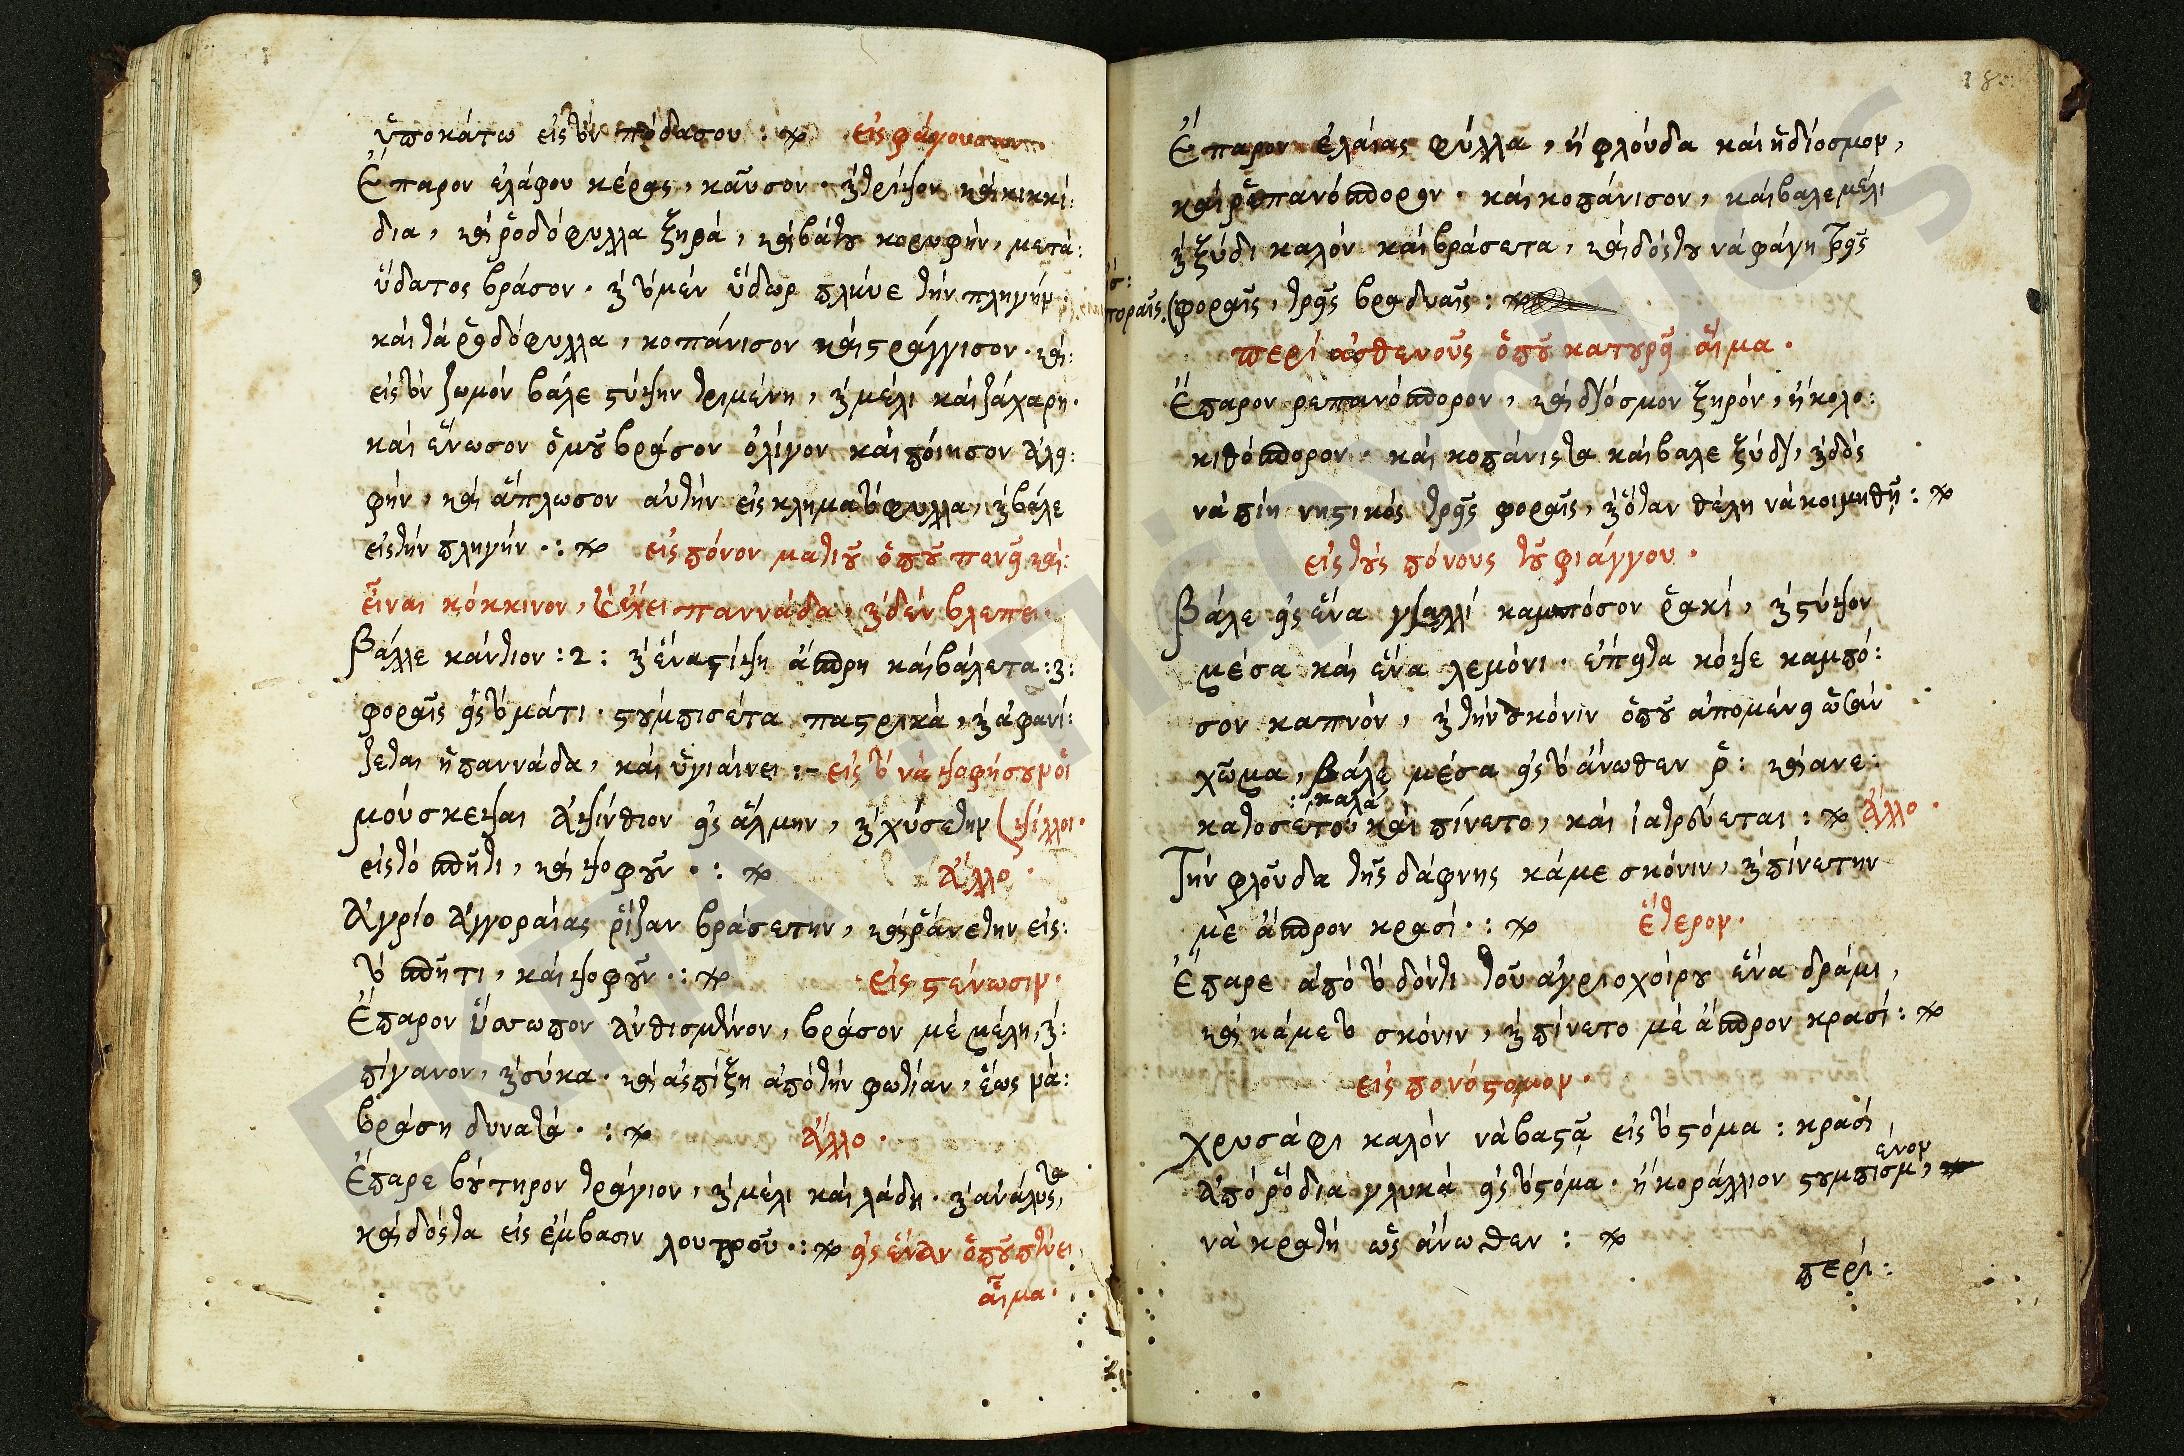 ὑποκάτω εἰς τὸν πόδασου : εἰς φάγουσαν
Ἔπαρον ἐλάφου κέρας, καῦσον · καὶ τρίψον καὶ κικκί:
δια, καὶ ῥοδόφυλλα ξηρά, καὶ βάτου κορυφήν, μετά:
ὕδατος βράσον · καὶ τὸ μέν ὕδωρ πλύνε τὴν πληγήν
καὶ τὰ ῥοδόφυλλα, κοπάνισον καὶ στράγγισον · καὶ:
εἰς τὸν ζωμόν βάλε στύψην τριμένη, καὶ μέλι καὶ ζάχαρη ·
καὶ ἕνωσον ὁμοῦ βράσον ὀλίγον καὶ ποίησον ἀλοι:
φήν, καὶ ἅπλωσον αὐτὴν εἰς κληματόφυλλα, καὶ βάλε
εἰς τὴν πληγήν · : εἰς πόνον ματιοῦ ὁποῦ πονεῖ καὶ:
εἶναι κόκκινον, ἢ ἔχει παννάδα, καὶ δέν βλεπει ·
Βάλλε κάντιον : 2 : καὶ ἕνα στίψη ἄσπρη καὶ βάλετα : 3 :
φοραῖς εἰς τὸ μάτι · στούμπισέτα παστρικά, καὶ ἀφανί:
ζεται ἡ παννάδα, καὶ ὑγιαίνει :- εἰς τὸ νὰ ψοφήσουν οἱ
μούσκεψαι ἀψίνθιον εἰς ἅλμην, καὶ χύσετην (ψύλλοι ·
εἰς τὸ σπῆτι, καὶ ψοφοῦν · : Ἄλλο ·
Ἀγρίο ἀγγοραίας ῥίζαν βράσετην, καὶ ῥάνετην εἰς:
τὸ σπῆτι, καὶ ψοφοῦν · : εἰς στένωσιν ·
Ἔπαρον ὕσσωπον ἀνθισμένον, βράσον μὲ μέλη, καὶ:
πίγανον, καὶ σύκα · καὶ ἀς πίξη ἀπὸ τὴν φωτίαν, ἕως νὰ:
βράση δυνατά · : Ἄλλο ·
Ἔπαρε βούτηρον τράγιον, καὶ μέλι καὶ λάδη · καὶ ἀνάλυσέ τα,
καὶ δόςτα εἰς ἔμβασιν λουτροῦ · : εἰς ἕναν ὁποῦ πτύει
αἷμα ·
Ἔπαρον ἐλαίας φύλλα, ἢ φλούδα καὶ ἡδίοσμον,
καὶ ῥεπανόσπορον · καὶ κοπάνισον, καὶ βαλε μέλι
καὶ ξύδι καλόν καὶ βράσετα, καὶ δόςτου νὰ φάγη τρεῖς
(φοραῖς, τρεῖς βραδυαῖς :
περί ἀσθενοῦς ὁποῦ κατουρεῖ αἷμα ·
Ἔπαρον ρεπανόσπορον, καὶ διόσμον ξηρόν, ἢ κολο:
κιθόσπορον · καὶ κοπάνιστα καὶ βαλε ξύδι, καὶ δός
νὰ πίη νηστικός τρεῖς φοραῖς, καὶ ὅταν θέλη νὰ κοιμηθῆ :
εἰς τοὺς πόνους τοῦ φιάγγου ·
Βάλε εἰς ἕνα γυαλλί καμπόσον ῥακί, καὶ στύψον
μέσα καὶ ἕνα λεμόνι · ἔπειτα κόψε καμπό:
σον καπνόν, καὶ τὴν σκόνιν ὁποῦ ἀπομένει ὡσάν
χῶμα, βάλε μέσα εἰς τὸ ἄνωθεν ῥ: καὶ ανε:
κατοσέτο καλά καὶ πίνετο, καὶ ἰατρεύεται : Ἄλλο ·
Τὴν φλοῦδα τῆς δάφνης κάμε σκόνιν, καὶ πίνετην
μὲ ἄσπρον κρασί · : ἕτερον ·
Ἔπαρε ἀπὸ τὸ δόντι τοῦ ἀγριοχοίρου ἕνα δράμι,
καὶ κάμετο σκόνιν, καὶ πίνετο μὲ ἄσπρον κρασί :
εἰς πονόστομον ·
Χρυσάφι καλόν νὰ βαστᾶ εἰς τὸ στόμα : κρασί
ἀπὸ ῥόδια γλυκά εἰς τὸ στόμα · ἢ κοράλλιον στουμπισμένον,
νὰ κρατῆ ὡς ἄνωθεν :
περί: